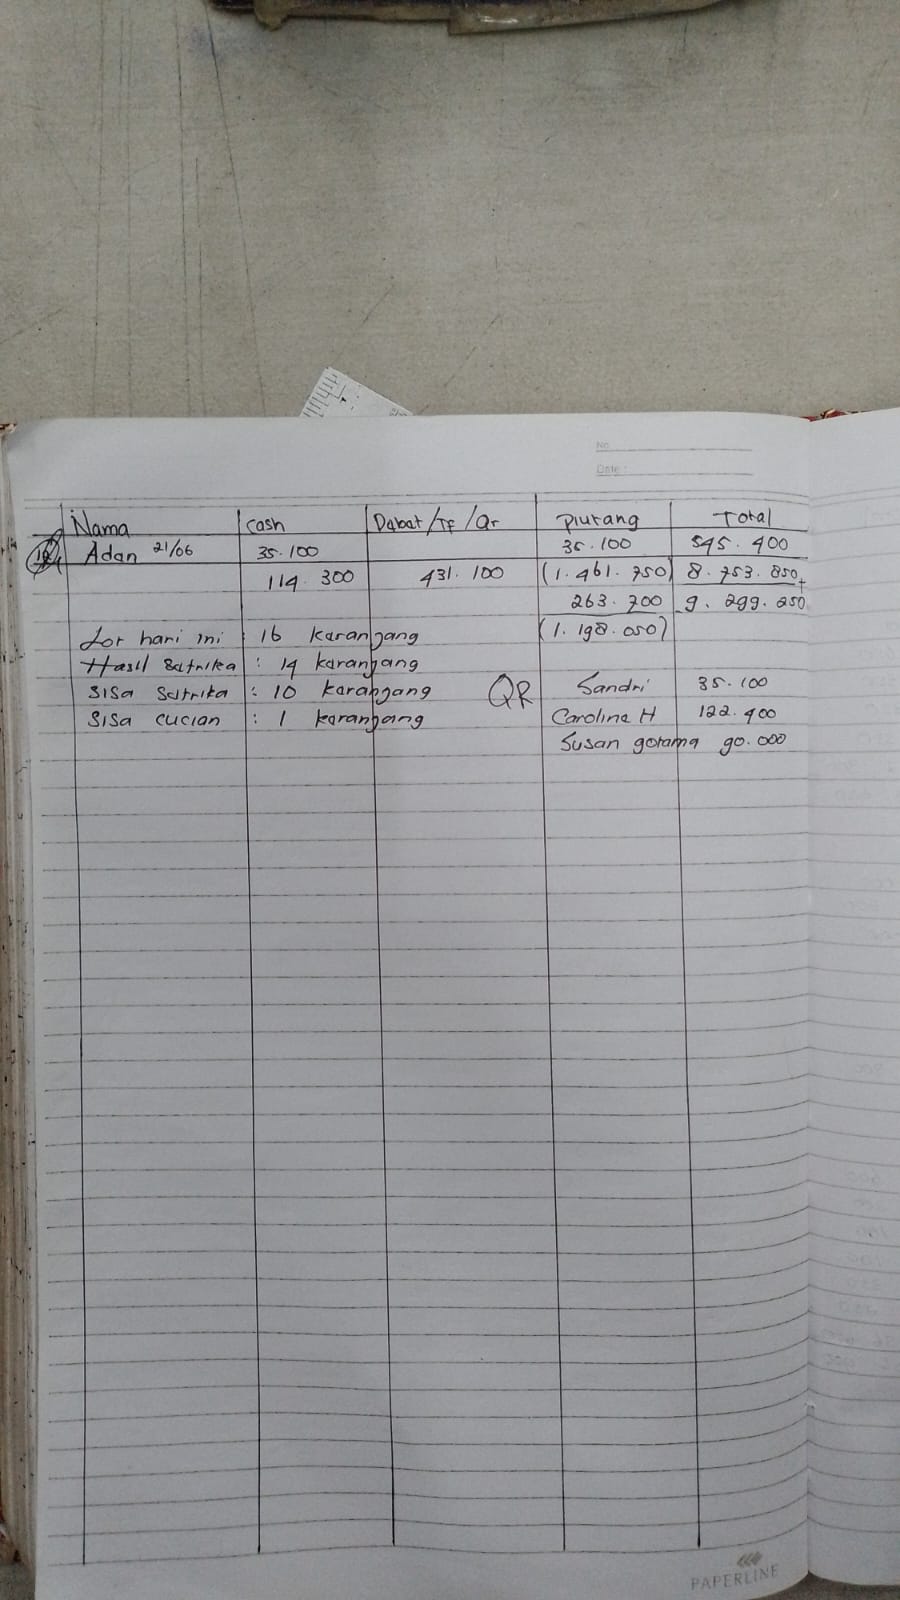 No.
Date :
Nama Cash Debet/TF/Qr Piutang Total
Adan 21/06 35.100 35.100 545.400
114.300 431.100 (1.461.750) 8.753.850 +
263.700 9.299.250
Lor hari ini : 16 Keranjang (1.198.050)
Hasil Setrika : 14 keranjang
Sisa Setrika : 10 keranjang QR Sandri 35.100
Sisa cucian : 1 keranjang Caroline H 122.400
Susan gotama 90.000
PAPERLINE